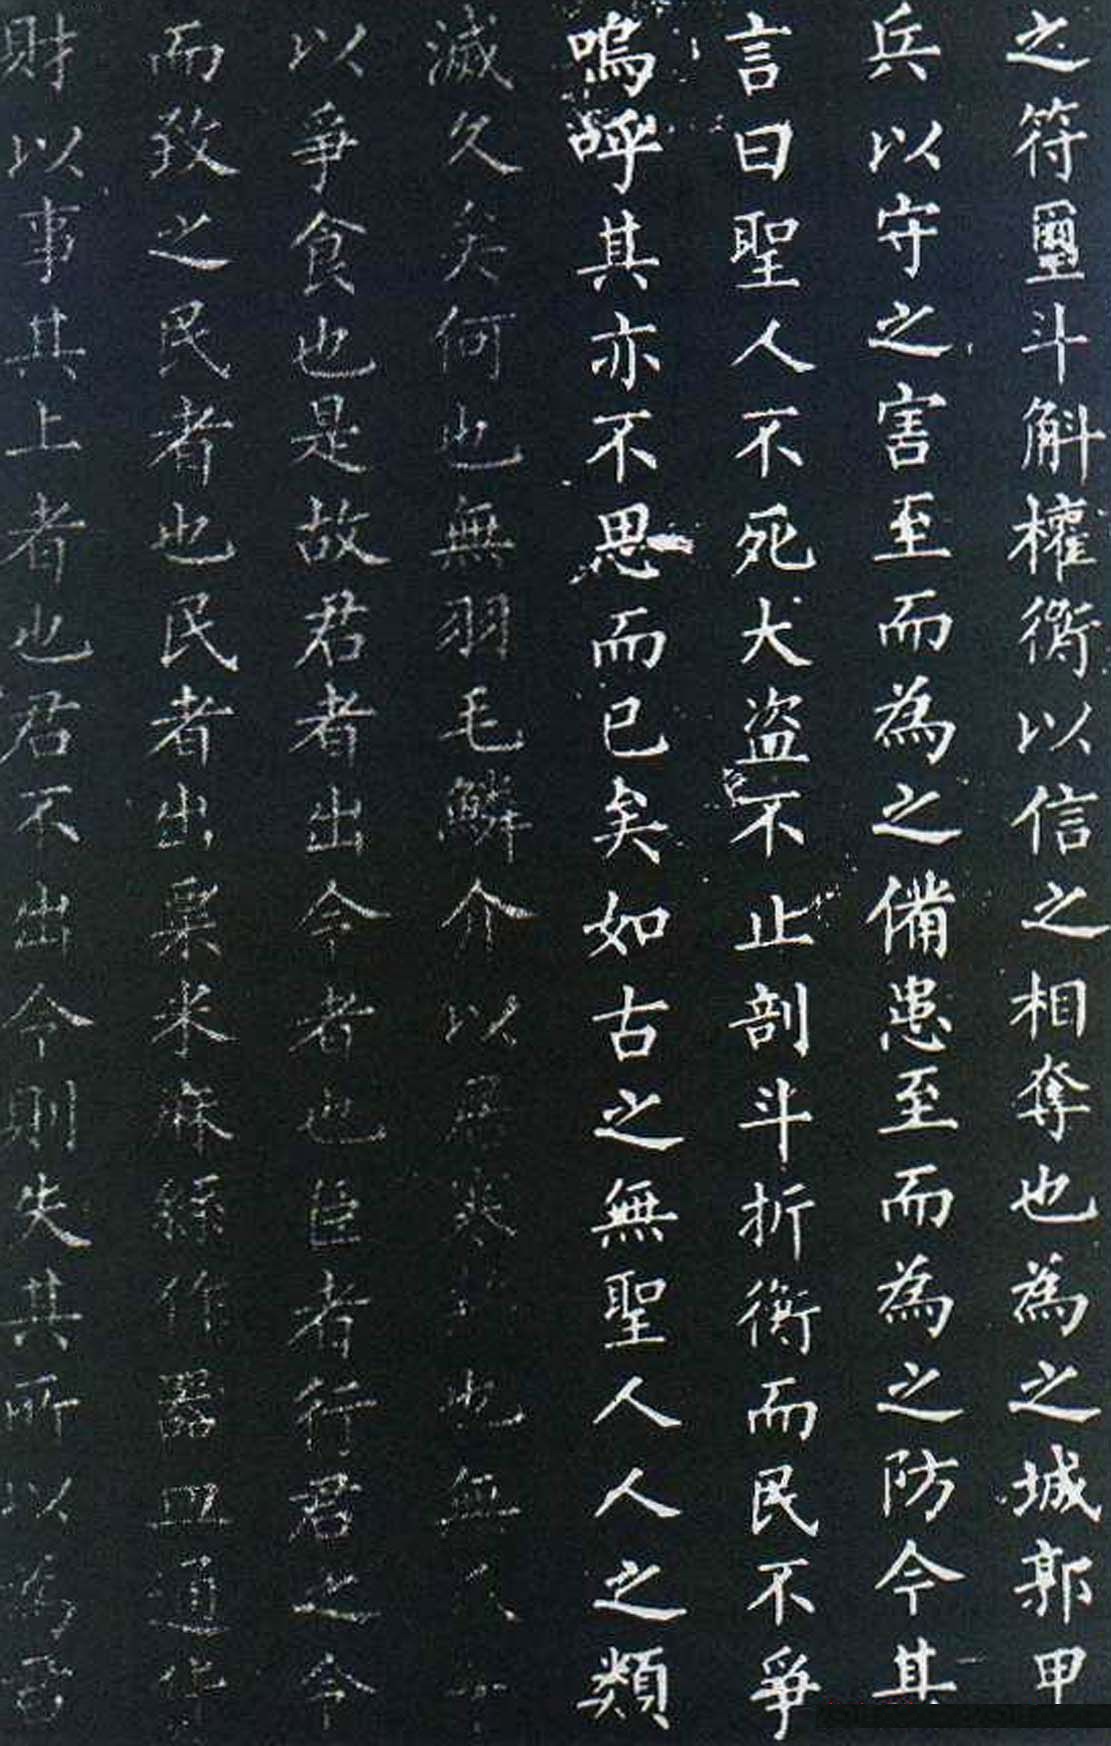 之符璽斗斛權衡以信之相奪也為之城郭甲
兵以守之害至而為之備患至而為之防今其
言曰聖人不死大盗不止剖斗折衡而民不爭
嗚呼其亦不思而已矣如古之無聖人人之類
滅久矣何也無羽毛鱗介以居寒也無爪牙
以爭食也是故君者出令者也臣者行君之令
而致之民者也民者出粟米麻絲作器皿通貨
財以事其上者也君不出令則失其所以為君